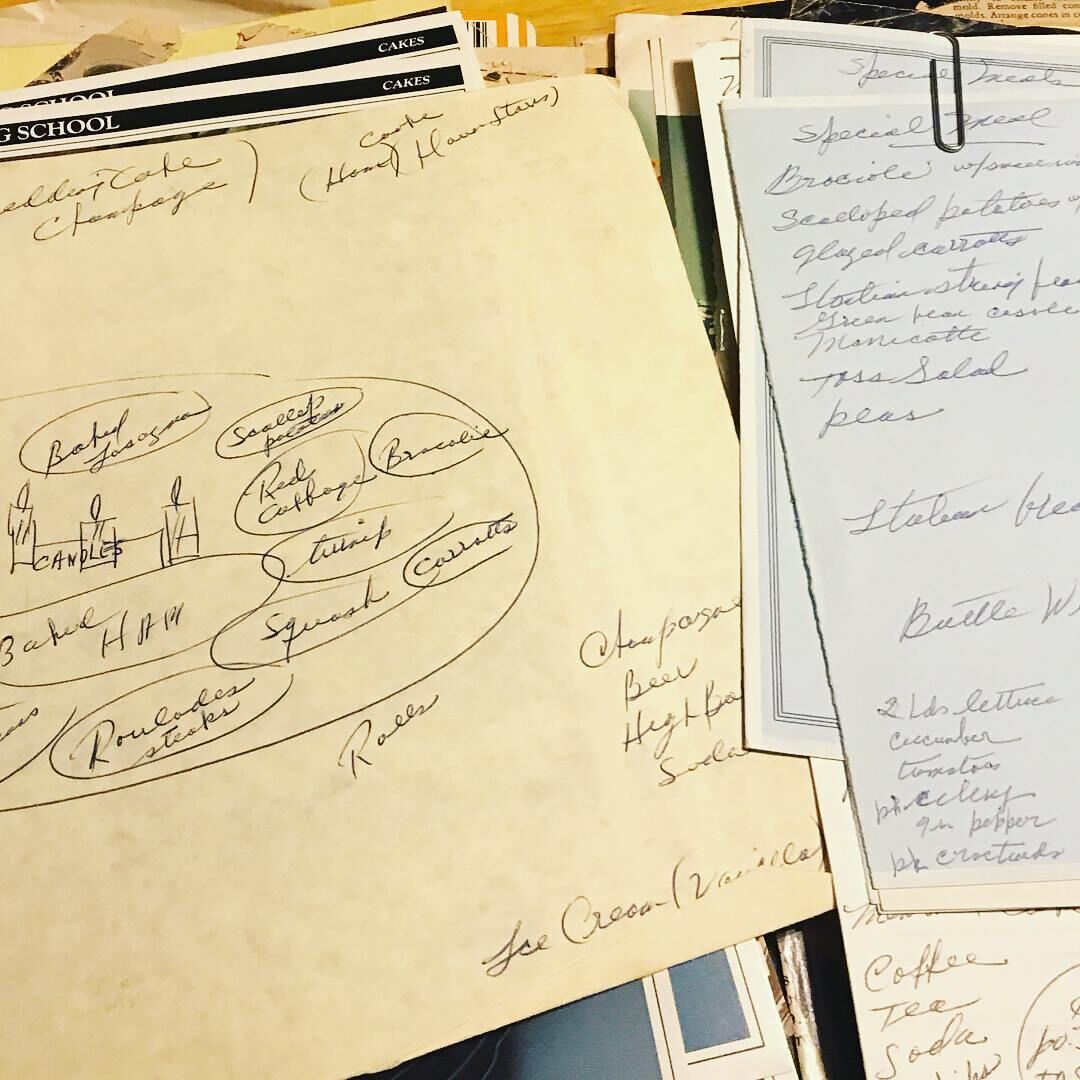 mold. Remove filled
molds. Arrange cones in
CAKES
CAKES
G SCHOOL
Cake
Champagne
Cooke
(Home
Baked
Lasagna
Scallop
potatoes
Red
Cabbage
Bracolie
CANDLES
turnip
Carrotts
Squash
Baked
HAM
Roulades
steaks
Rolls
Champagne
Beer
High Ba
Soda
Ice Cream (Vanilla)
Special Meals
Special Meal
Braciole w/
Scalloped potatoes w
glazed carrotts
Italian string bea
Green bean
Manicotte
Toss Salad
peas
Italian
Bottle W
2 hds lettuce
cucumber
tomatoes
pk celery
gn pepper
pk
Coffee
Tea
Soda
po